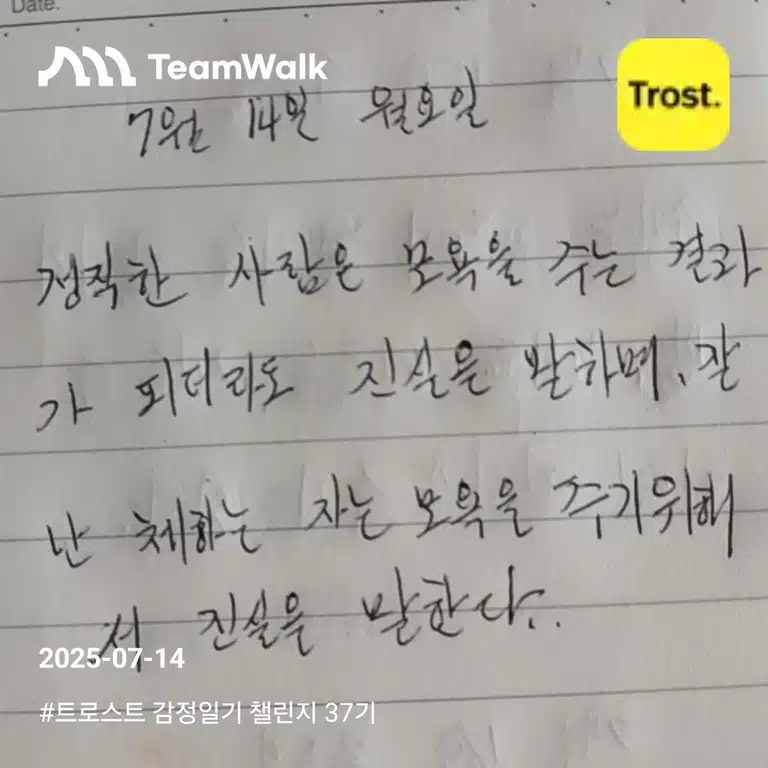 Date.
TeamWalk
Trost.
7월 14일 월요일
정직한 사람은 모욕을 주는 결과
가 되더라도 진실을 말하며, 잘
난 체하는 자는 모욕을 주기위해
서 진실을 말한다..
2025-07-14
#트로스트 감정일기 챌린지 37기